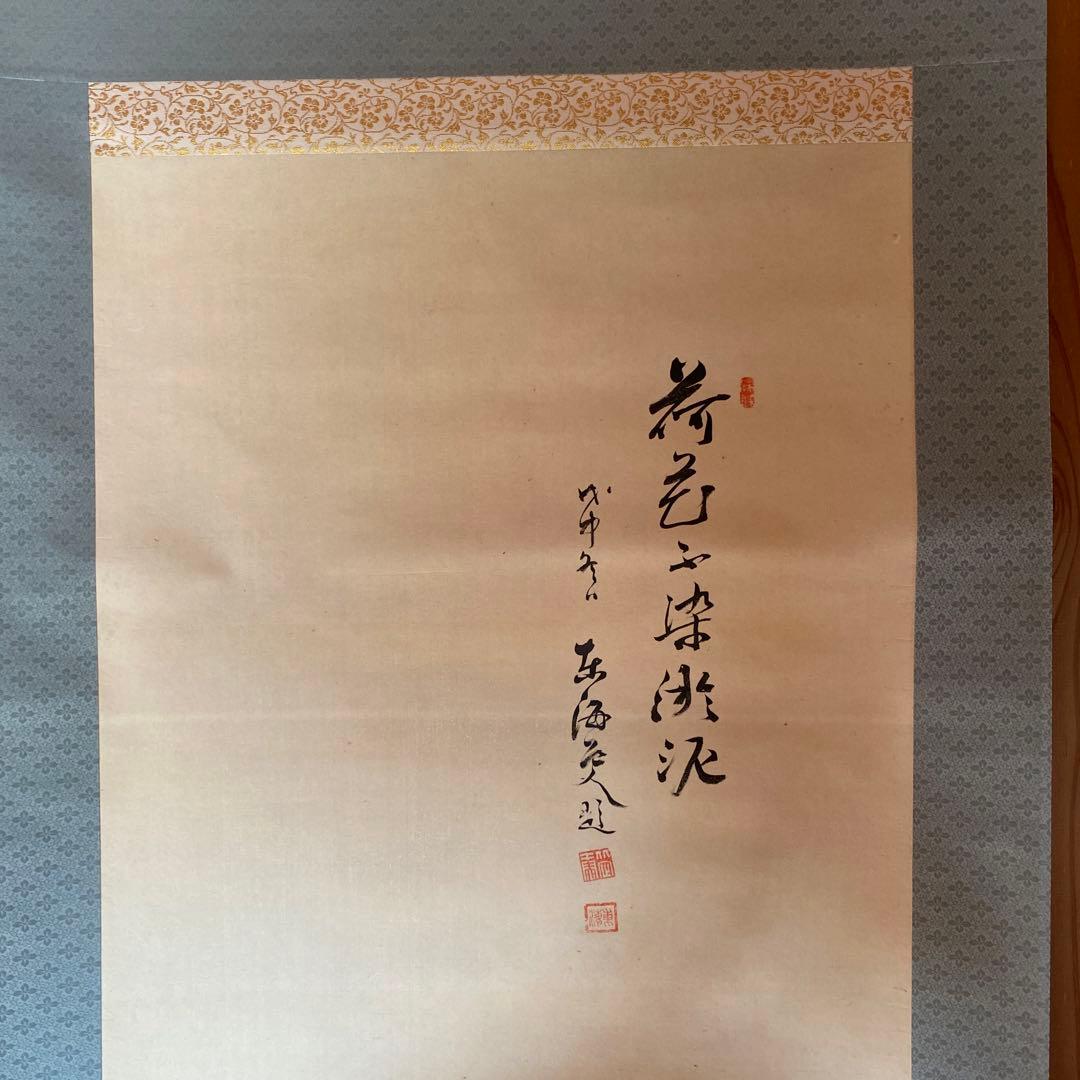 荷花不染淤泥
戊申冬日 東海英人題